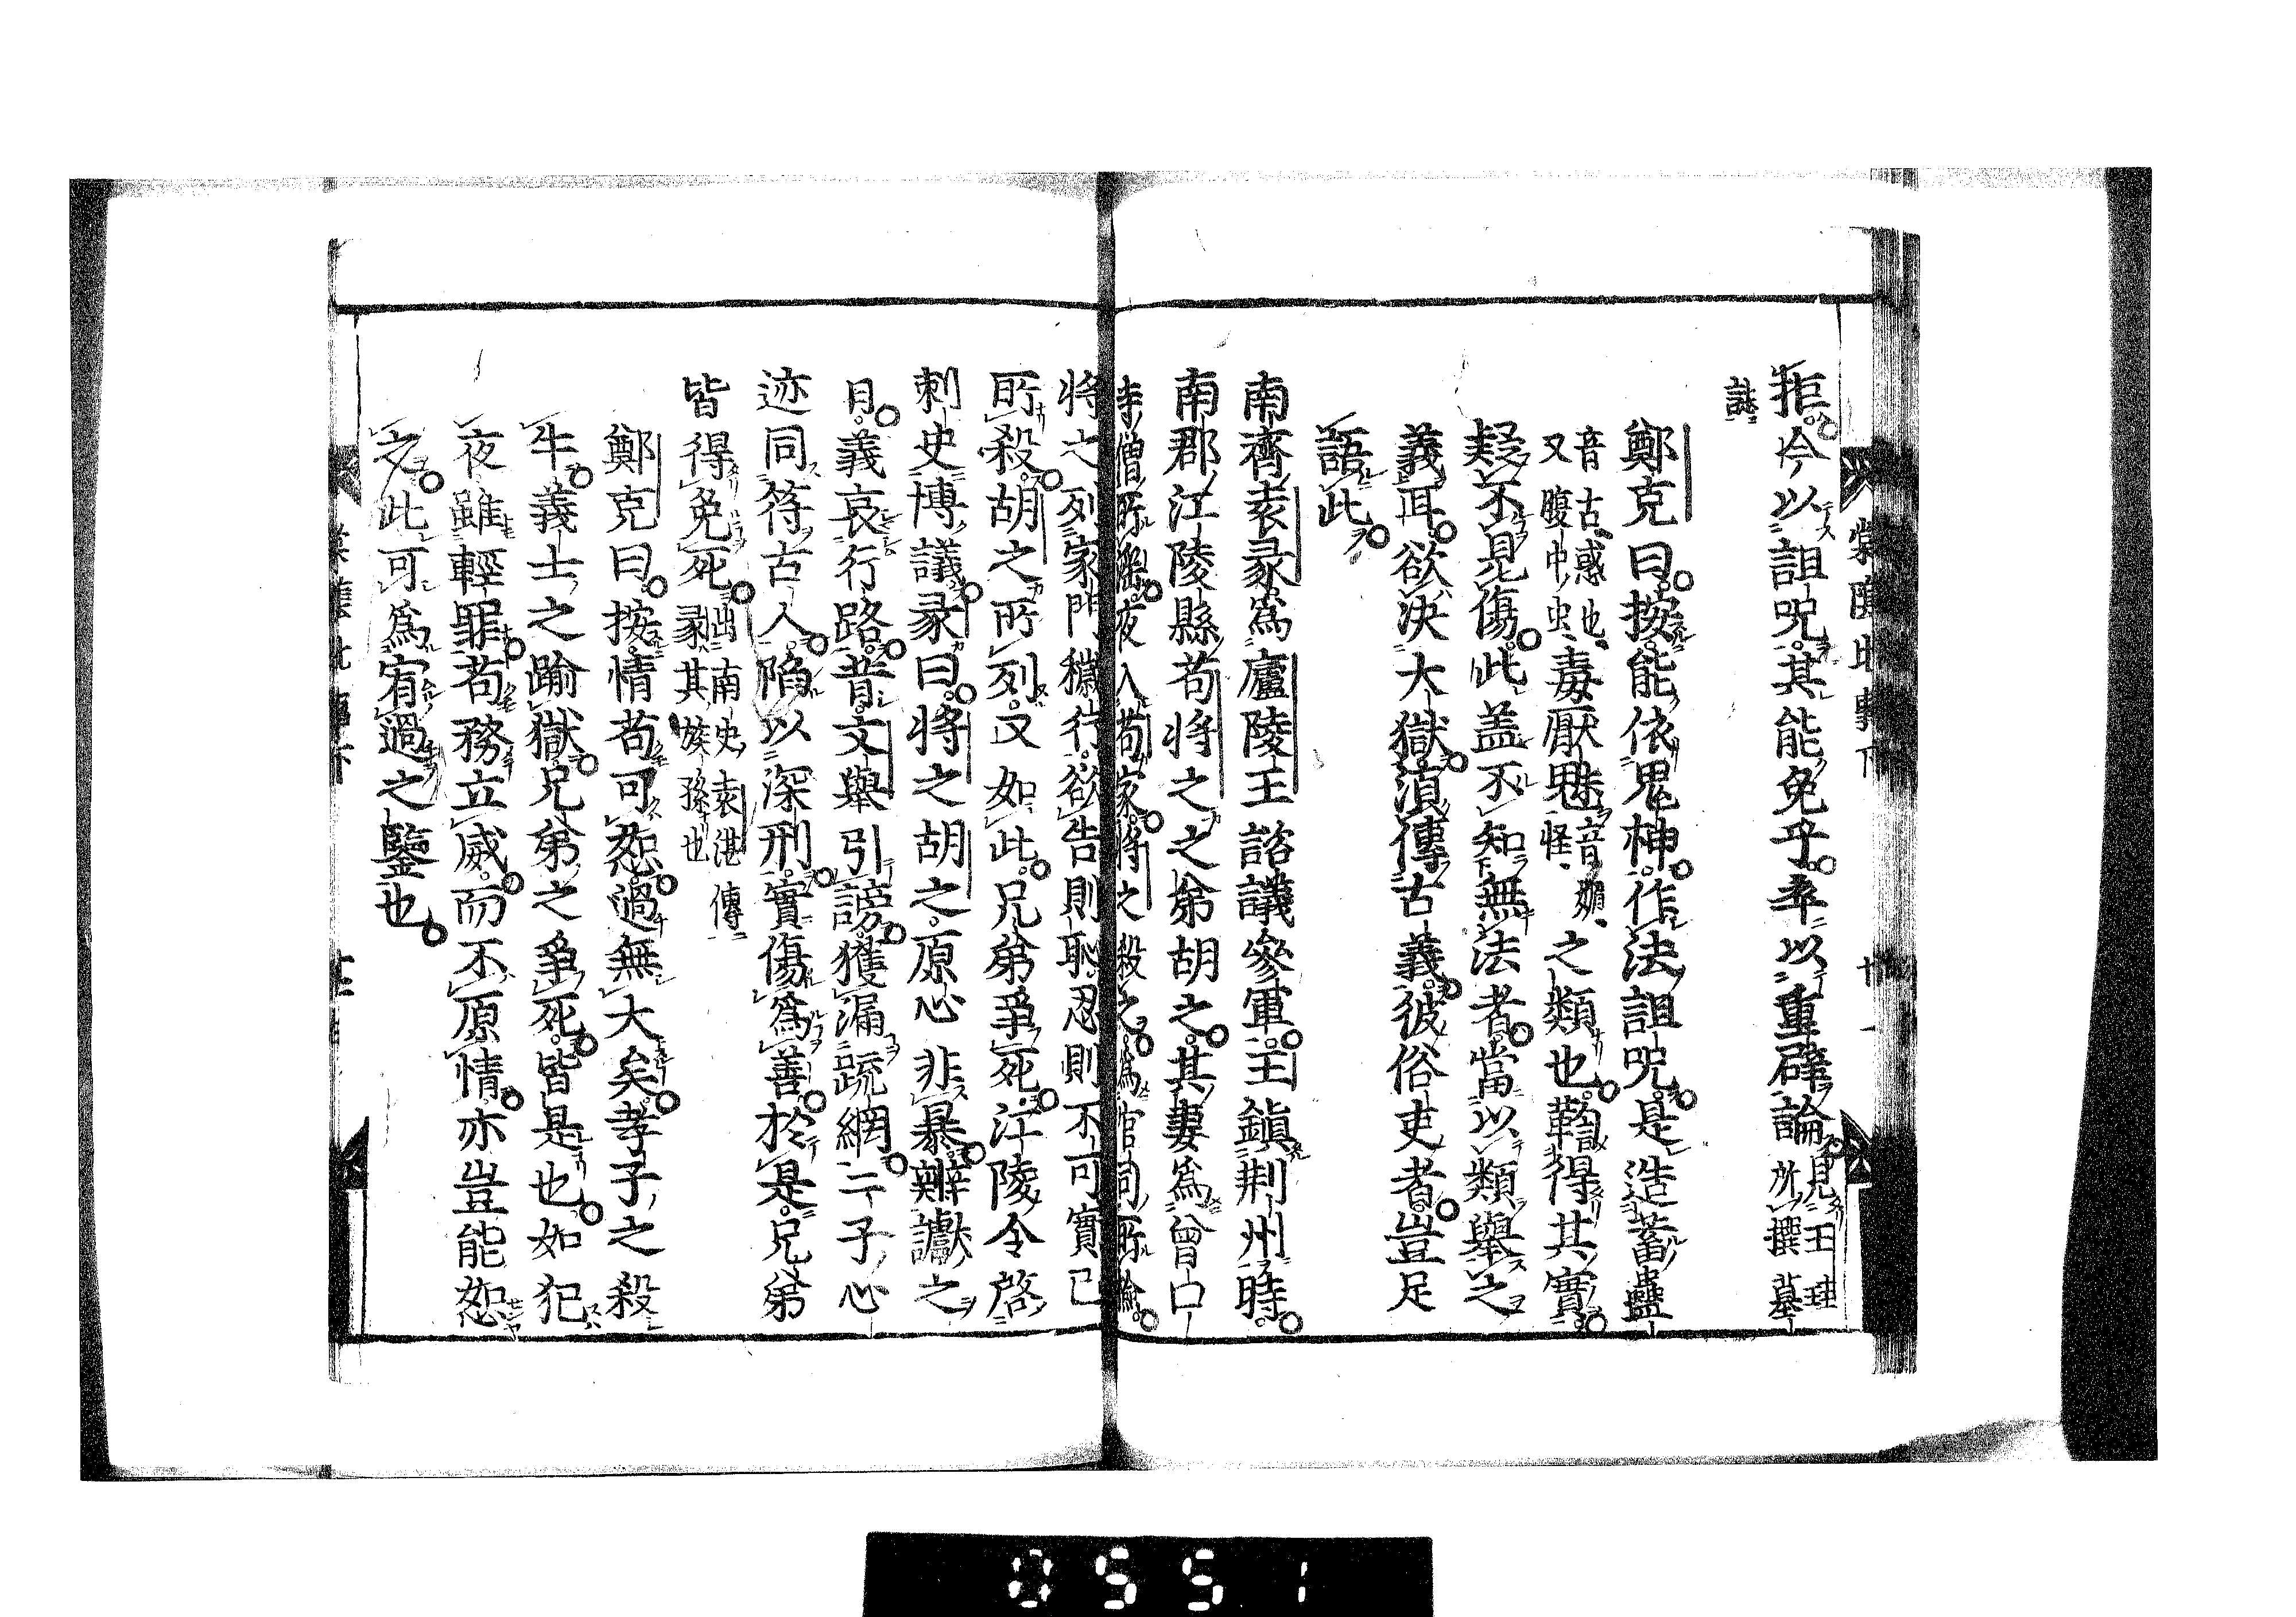 拒今以詛呪其能免乎卒以重辟論見王珪所撰墓
誌
鄭克曰按能依鬼神作法詛呪是造蓄蠱
音古惑也又腹中虫毒厭魅音媚怪之類也鞫得其實
疑不見傷此盖不知無法者當以類舉之
義耳欲决大獄湏傳古義彼俗吏者豈足
語此
南齊袁彖爲廬陵王諮議參軍王鎮荆州時
南郡江陵縣苟將之之弟胡之其妻爲曾口
寺僧所滛夜入苟家將之殺之爲官司所檢
將之列家門穢行欲告則恥忍則不可實已
所殺胡之所列又如此兄弟爭死江陵令啓
刺史博議彖曰將之胡之原心非暴辨讞之
日義哀行路昔文舉引謗獲漏疏網二子心
迹同符古人陷以深刑實傷爲善於是兄弟
皆得免死出南史袁湛傳彖其族孫也
鄭克曰按情苟可恕過無大矣孝子之殺
牛義士之踰獄兄弟之爭死皆是也如犯
夜雖輕罪苟務立威而不原情亦豈能恕
之此可爲宥過之鑒也
0551